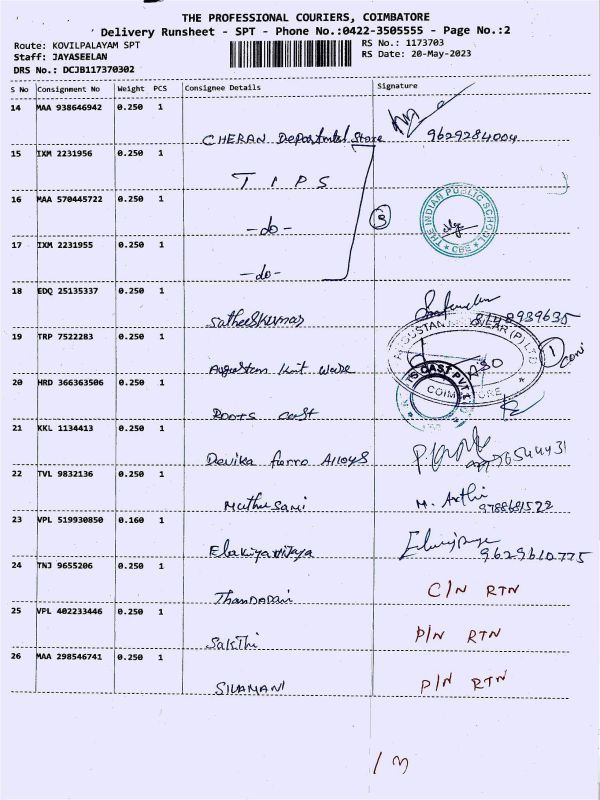 THE PROFESSIONAL COURIERS, COIMBATORE
Delivery Runsheet - SPT - Phone No.:0422-3505555 - Page No.:2
Route: KOVILPALAYAM SPT
RS No.: 1173703
Staff: JAYASEELAN
RS Date: 20-May-2023
DRS No.: DCJB117370302
S No Consignment No Weight PCS Consignee Details Signature
14 MAA 938646942 0.250 1
CHERAN Departmental Store 9629284004
15 IXM 2231956 0.250 1
T I P S
16 MAA 570445722 0.250 1
-do- 3 THE INDIAN PUBLIC SCHOOL CBE
17 IXM 2231955 0.250 1
-do-
18 EDQ 25135337 0.250 1
Satheeskumar 8148939635
19 TRP 7522283 0.250 1
Augustan Knit Ware
20 HRD 366363506 0.250 1
Roots cast
21 KKL 1134413 0.250 1
Devika ferro Alloys
22 TVL 9832136 0.250 1
Muthu Sami M. Arthi
23 VPL 519930850 0.160 1
Elakiya 9629610775
24 TNJ 9655206 0.250 1
Thandapani C/N RTN
25 VPL 402233446 0.250 1
Sakthi P/N RTN
26 MAA 298546741 0.250 1
SIVAMANI P/N RTN